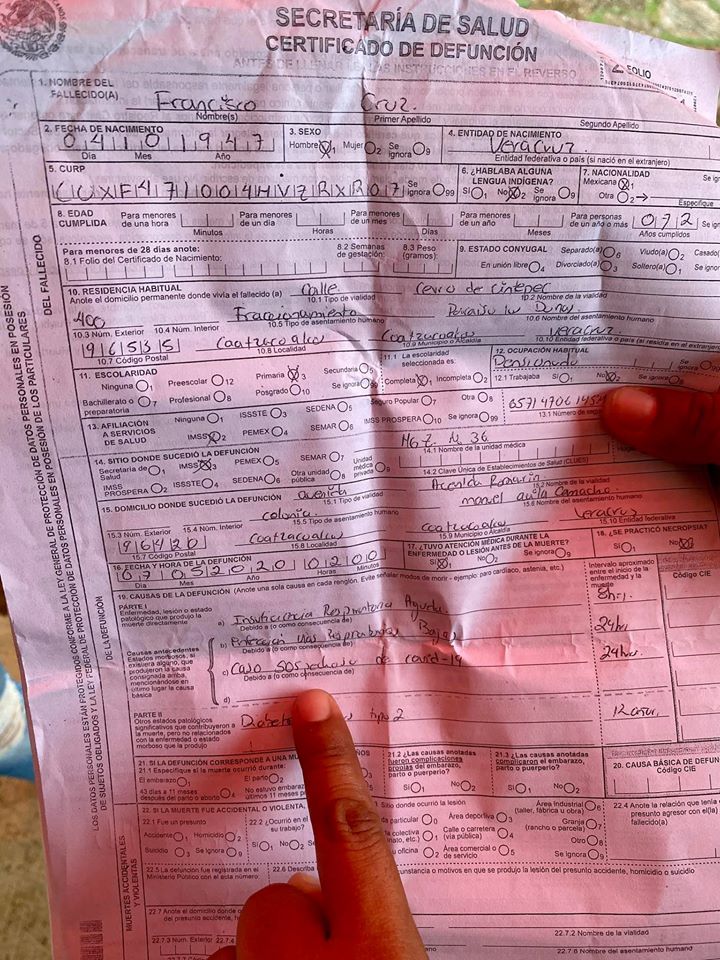 SECRETARÍA DE SALUD
CERTIFICADO DE DEFUNCIÓN
ANTES DE LLENAR LEA LAS INSTRUCCIONES EN EL REVERSO
FOLIO
1. NOMBRE DEL FALLECIDO(A) Francisco Cruz.
Nombre(s) Primer Apellido Segundo Apellido
2. FECHA DE NACIMIENTO 04101947 3. SEXO Hombre 1 Mujer 2 Se ignora 9 4. ENTIDAD DE NACIMIENTO Veracruz
Día Mes Año Entidad federativa o país (si nació en el extranjero)
5. CURP 6. ¿HABLABA ALGUNA LENGUA INDÍGENA? 7. NACIONALIDAD
Se ignora 99 Sí 1 No 2 Se ignora 9 Mexicana 1 Otra 2 Especifique
8. EDAD CUMPLIDA Para menores de una hora Para menores de un día Para menores de un mes Para menores de un año Para personas de un año o más 072
Minutos Horas Días Meses Años cumplidos
Para menores de 28 días anote: 8.2 Semanas de gestación: 8.3 Peso (gramos): 9. ESTADO CONYUGAL Separado(a) 6 Viudo(a) 2
8.1 Folio del Certificado de Nacimiento: En unión libre 4 Divorciado(a) 3 Soltero(a) 1
10. RESIDENCIA HABITUAL Calle Cerro de Cintepec
Anote el domicilio permanente donde vivía el fallecido (a) 10.1 Tipo de vialidad 10.2 Nombre de la vialidad
400 Fraccionamiento
10.3 Núm. Exterior 10.4 Núm. Interior 10.5 Tipo de asentamiento humano 10.6 Nombre del asentamiento humano
Coatzacoalcos Coatzacoalcos Veracruz
10.7 Código Postal 10.8 Localidad 10.9 Municipio o Alcaldía 10.10 Entidad federativa o país (si residía en el extranjero)
11. ESCOLARIDAD Primaria 3 Secundaria 5 11.1 La escolaridad seleccionada es: 12. OCUPACIÓN HABITUAL Pensionado
Ninguna 1 Preescolar 12 Completa 1 Incompleta 2 12.1 Trabajaba Sí 1 No 2 Se ignora
Bachillerato o preparatoria 7 Profesional 8 Posgrado 10 Se ignora 99
13. AFILIACIÓN A SERVICIOS DE SALUD Ninguna 1 ISSSTE 3 SEDENA 5 Seguro Popular 7 Otra 8
IMSS 2 PEMEX 4 SEMAR 6 IMSS PROSPERA 10 Se ignora 99
14. SITIO DONDE SUCEDIÓ LA DEFUNCIÓN 14.1 Nombre de la unidad médica
Secretaría de Salud 1 IMSS 3 PEMEX 5 SEMAR 7 Unidad médica privada
IMSS PROSPERA 2 ISSSTE 4 SEDENA 6 Otra unidad pública 8 14.2 Clave Única de Establecimientos de Salud (CLUES)
15. DOMICILIO DONDE SUCEDIÓ LA DEFUNCIÓN Avenida
15.1 Tipo de vialidad 15.2 Nombre de la vialidad
colonia manuel avila Camacho
15.3 Núm. Exterior 15.4 Núm. Interior 15.5 Tipo de asentamiento humano 15.6 Nombre del asentamiento humano
96420 Coatzacoalcos Coatzacoalcos Veracruz
15.7 Código Postal 15.8 Localidad 15.9 Municipio o Alcaldía 15.10 Entidad federativa
16. FECHA Y HORA DE LA DEFUNCIÓN 17. ¿TUVO ATENCIÓN MÉDICA DURANTE LA ENFERMEDAD O LESIÓN ANTES DE LA MUERTE? 18. ¿SE PRACTICÓ NECROPSIA?
07052020 0200 Sí 1 No 2 Se ignora 9 Sí 1
Día Mes Año Horas Minutos
19. CAUSAS DE LA DEFUNCIÓN (Anote una sola causa en cada renglón. Evite señalar modos de morir - ejemplo: paro cardíaco, astenia, etc.) Intervalo aproximado entre el inicio de la enfermedad y la muerte Código CIE
PARTE I
Enfermedad, lesión o estado patológico que produjo la muerte directamente a) Insuficiencia Respiratoria Aguda
Debido a (o como consecuencia de)
Causas antecedentes b) Infeccion Vias Respiratorias Bajas 24hr
Estados morbosos, si existiera alguno, que produjeron la causa consignada arriba, mencionándose en último lugar la causa básica
Debido a (o como consecuencia de)
c) Caso sospechoso de covid-19 24hr.
Debido a (o como consecuencia de)
d)
PARTE II
Otros estados patológicos significativos que contribuyeron a la muerte, pero no relacionados con la enfermedad o estado morboso que la produjo tipo 2
21. SI LA DEFUNCIÓN CORRESPONDE A UNA
21.1 Especifique si la muerte ocurrió durante:
El embarazo 1 El parto 2
43 días a 11 meses después del parto o aborto 4
21.2 ¿Las causas anotadas fueron complicaciones propias del embarazo, parto o puerperio?
Sí 1 No 2
21.3 ¿Las causas anotadas complicaron el embarazo, parto o puerperio?
Sí 1 No 2
20. CAUSA BÁSICA DE
Código CIE
22. SI LA MUERTE FUE ACCIDENTAL O VIOLENTA,
22.1 Fue un presunto 22.2 ¿Ocurrió en el su trabajo? Sitio donde ocurrió la lesión
Accidente 1 Homicidio 2 Sí 1 No 2
Suicidio 3 Se ignora 9
Área deportiva 3 Área Industrial (taller, fábrica u obra) 6
Calle o carretera (vía pública) 4 Granja (rancho o parcela) 7
Área comercial o de servicio 5 Otro 8 Se ignora 9
22.4 Anote la relación que tenía presunto agresor con el(la) fallecido(a)
22.5 La defunción fue registrada en el Ministerio Público con el acta número 22.6
22.7 Anote el domicilio donde
22.7.2 Nombre de la vialidad
22.7.3 Núm. Exterior 22.7.4
22.7.6 Nombre del asentamiento humano
DEL FALLECIDO
DE LA DEFUNCIÓN
MUERTES ACCIDENTALES Y VIOLENTAS
LOS DATOS PERSONALES ESTÁN PROTEGIDOS CONFORME A LA LEY GENERAL DE PROTECCIÓN DE DATOS PERSONALES EN POSESIÓN DE SUJETOS OBLIGADOS Y LA LEY FEDERAL DE PROTECCIÓN DE DATOS PERSONALES EN POSESIÓN DE LOS PARTICULARES